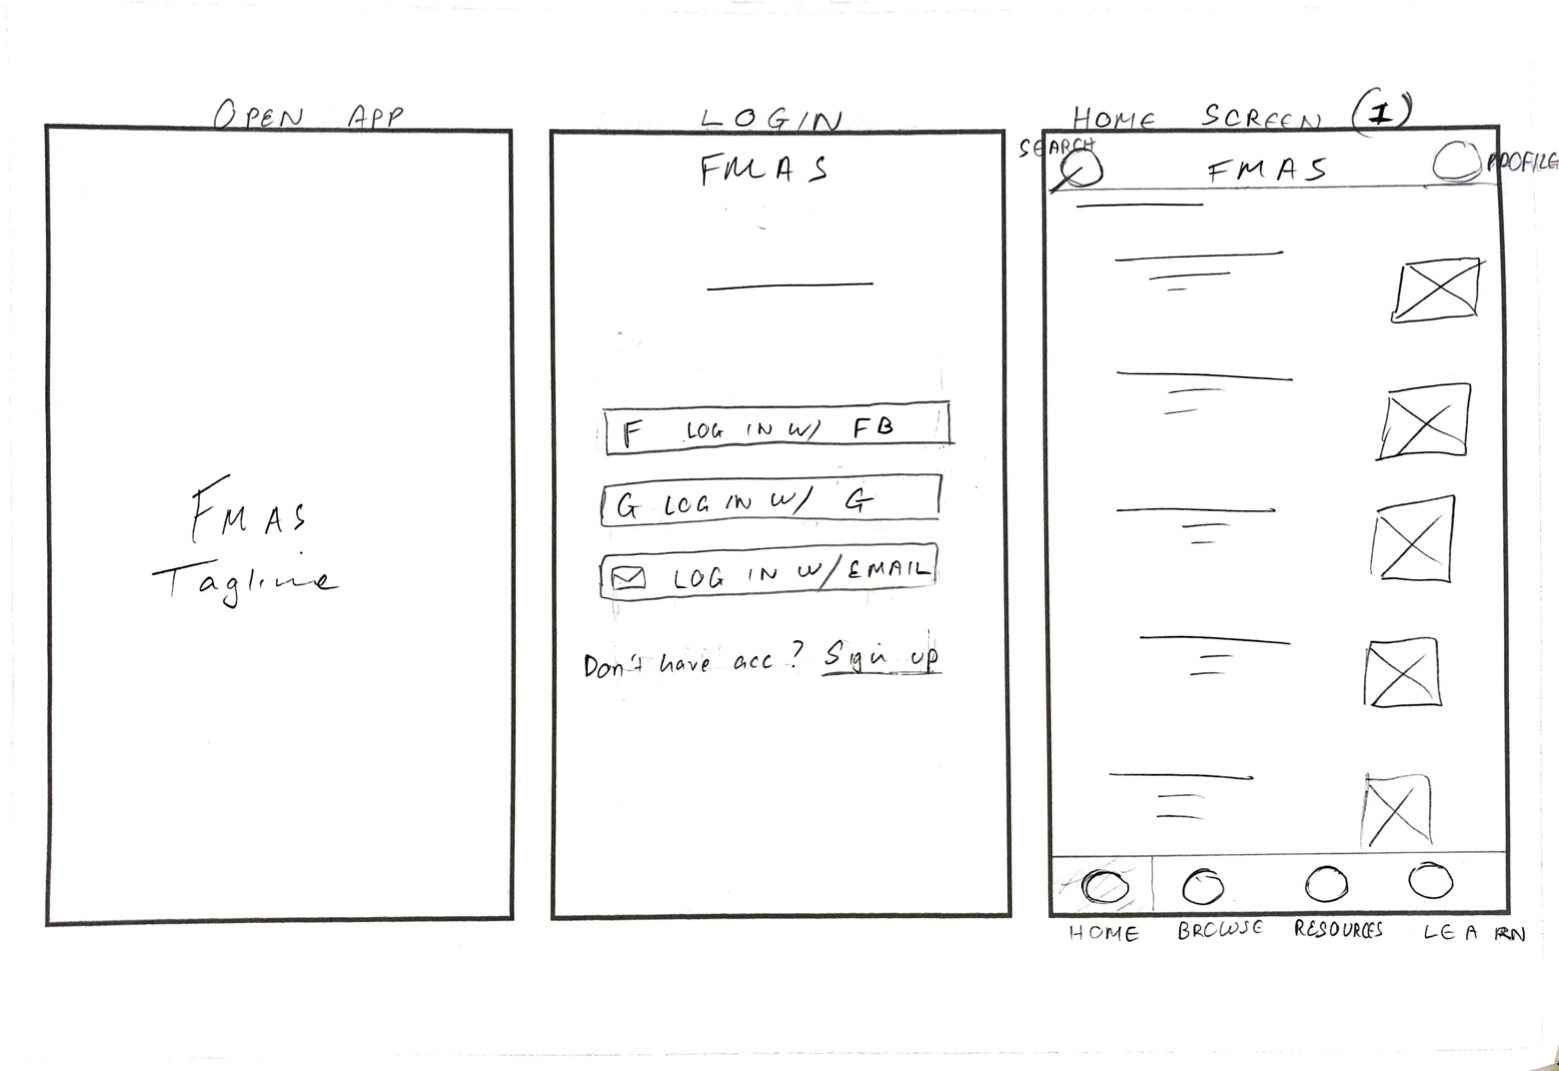 OPEN APP
FMAS
Tagline
LOGIN
FMAS
F LOG IN W/ FB
G LOG IN W/ G
LOG IN W/ EMAIL
Don't have acc? Sign up
HOME SCREEN (1)
SEARCH
FMAS
PROFILE
HOME BROWSE RESOURCES LEARN